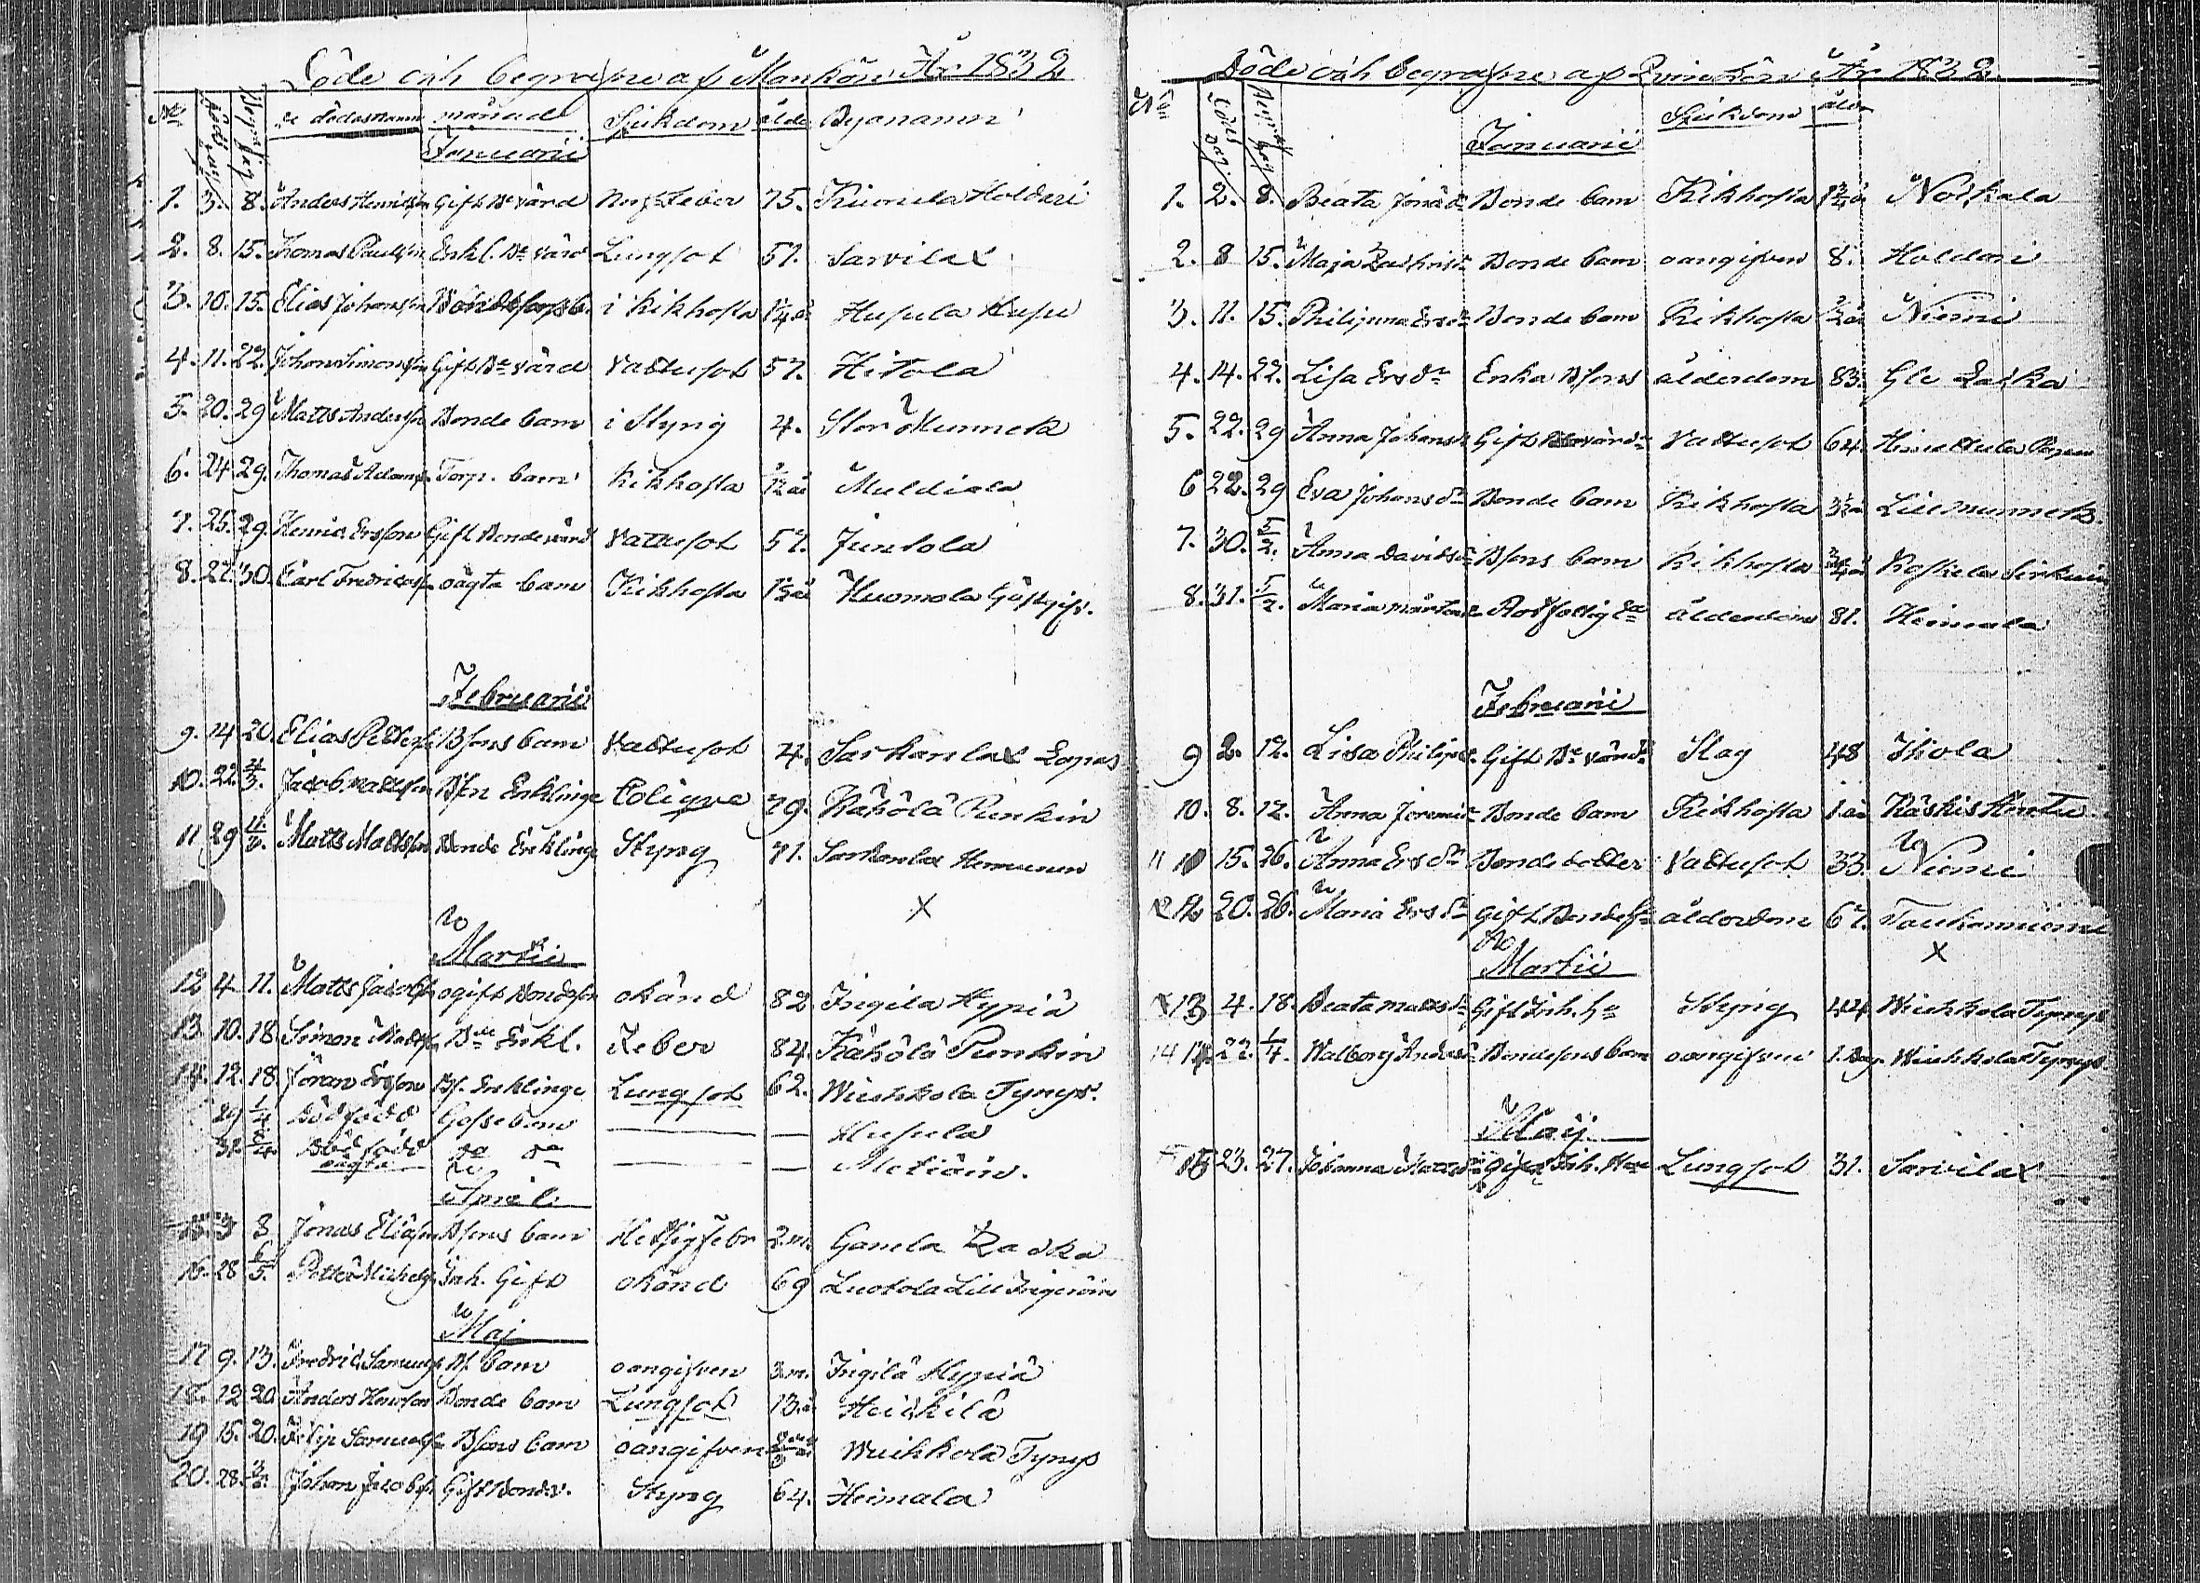 Döde och begrafne af Mankön År 1832
No Död dag Begrafdag de dödas namn månad Sjukdom ålder Byanamn
Januarii
1. 3. 8. Anders Henricsson Gift Be värd Nerffeber 75. Kuonela Holdari
2. 8. 15. Thomas Paulsson Enkl. Be värd Lungsot 57. Sarvilax
3. 10. 15. Elias Johansson i Kikhosta 1/4 år Husula Husu
4. 11. 22. Johan Simonsson Gift Be värd Vattusot 57. Hitola
5. 20. 29 Matts Andersson Bonde barn i Styng 4. Stor Munnela
6. 24 29. Thomas Adamss. Torp. barn Kikhosta 1/2 år Muldiala
7. 25. 29. Henric Ersson Gift Bonde värd Vattusot 57. Juntola
8. 27. 30. Carl Fredricss. oägta barn Kikhosta 1 1/2 år Husmola Gästgif.
Februarii
9. 14. 20. Elias Petterss. Bsons barn Vattusot 4. Sarkanlax Lopas
10. 22. 4/3. Jacob Mattsson Bsn Enklinge Colique 79. Kähölä Punkin
11 29 11/3. Matts Mattsson Bonde Enklinge Styng 71. Sarkanlax Hemmunen
X
Martii
12 4 11. Matts Jacobss. ogift Bondeson okänd 82 Ingila Hypiä
13. 10. 18. Simon Mattss. Bde Enkl. Feber 84. Kähölä Punkin
14. 12. 18. Jöran Ersson Bs. Enklinge Lungsot 62. Wiehkola Tynys.
29 1/4 Dödfödd Gossebarn — — Husula
31. 8/4 Dödfödd oägta do do — — Metiäin.
April
15. 3 8 Jonas Eliasson Bsons barn Hetsig feber 2. m. Gamla Backa
16. 28 6/5. Petter Michelss. Inh. Gift okänd 69 Luotola Lill Ingeröin
Maj
17 9. 13. Fredric Samuelss. Bs. barn oangifven 3. m. Ingilä Hypiä
18. 12 20. Anders Henrsson Bonde barn Lungsot 13. å Heickilä
19 15. 20. Filip Samuelss. Bsons barn oangifven Wiehkola Tynys
20. 28. 3/6. Johan Jacobss. Gift Bondev. Styng 64. Heimala
Döde och begrafne af Qvinkön År 1832
No Död dag Begraf dag Sjukdom ålder
Januarii
1. 2. 8. Beata Jonæ dr Bonde barn Kikhosta 1 3/4 år Noikala
2. 8 15. Maja Zachrisdr Bonde barn oangifven 8. Holdari
3. 11. 15. Philippina Ersdr Bonde barn Kikhosta 1/2 år Niemi
4. 14. 22. Lisa Ers dr Enka Bsons ålderdom 83. Gle Backa
5. 22. 29 Anna Johansdr Gift Vattusot 64.
6 22. 29 Eva Johans dr Bonde barn Kikhosta 3 1/2 å Lillmunnela.
7. 30. 5/2. Anna Davidsdr Bsons barn Kikhosta 3/4 å Koskela Sirkuin
8. 31. 5/2. Maria Mårtensdr Rotfattig Ea ålderdom 81. Heimala
Februarii
9 2. 12. Lisa Philips. Gift Be värd. Slag 48 Ihola
10. 8. 12. Anna Jeremiæ Bonde barn Kikhosta 1. år Käskis Hinttu.
11 15. 26. Anna Ers dr Bonde dotter Vattusot 33. Niemi
12 20. 26. Maria Ers dr gift Bonde ålderdom 67. Tackaniemi
X
Martii
13 4. 18. Beata Matts dr Gift Inh. Ha Styng 44 Wiehkola Tynys
14 22. 1/4. Walborg Andersdr Bondesons barn oangifven 1. dag. Wiehkola Tynys.
Maij
15 23. 27. Johanna Mattsdr Gift Inh. Ha Lungsot 31. Sarvilax